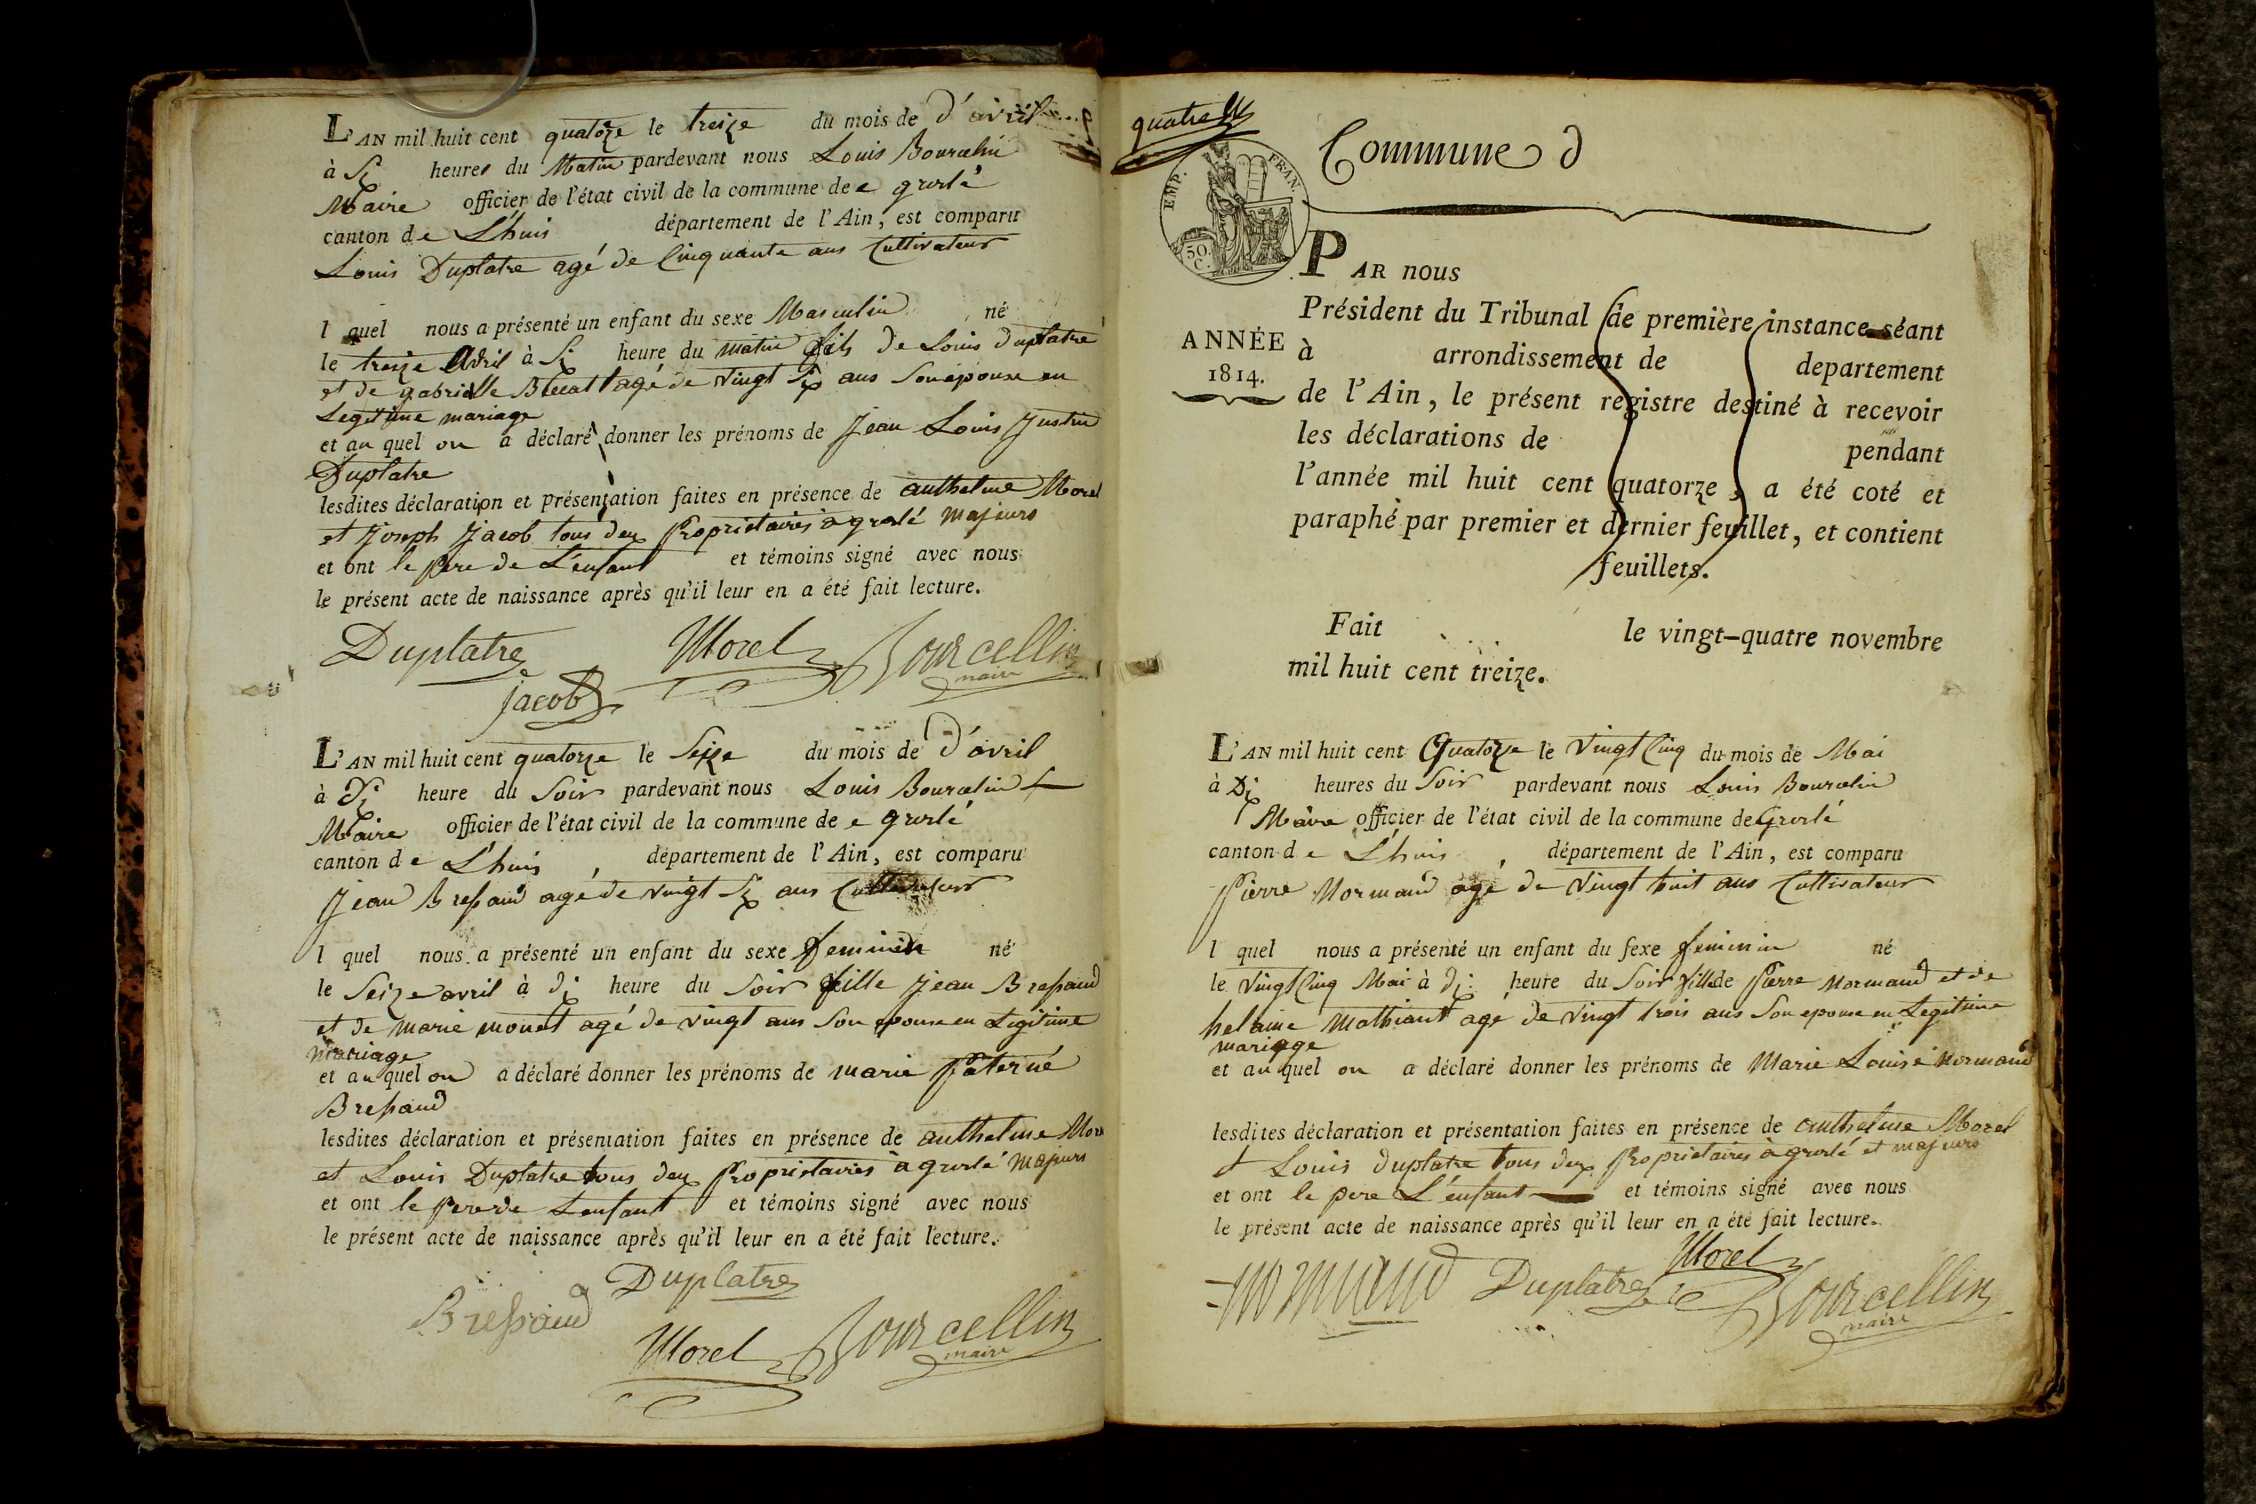 L'AN mil huit cent quatorze le treize du mois de d'avril
à Six heures du Matin pardevant nous Louis Bourcelin
Maire officier de l'état civil de la commune de e groslé
canton de L'huis département de l'Ain, est comparu
Louis Duplatre agé de Cinquante ans Cultivateur
l quel nous a présenté un enfant du sexe Masculin né
le treize Avril à Six heure du matin fils de Louis duplatre
et de gabrielle agé de vingt Six ans Son épouse en
Legitime mariage
et au quel on a déclaré donner les prénoms de Jean Louis Justin
Duplatre
lesdites déclaration et présentation faites en présence de anthelme Morel
et Joseph Jacob tous deux Proprietaires a groslé Majeurs
et ont le Pere de L'enfant et témoins signé avec nous
le présent acte de naissance après qu'il leur en a été fait lecture.
Duplatre Morel Bourcellin
maire
jacob
L'AN mil huit cent quatorze le Seize du mois de d'avril
à Dix heure du Soir pardevant nous Louis Bourcelin
Maire officier de l'état civil de la commune de e groslé
canton de L'huis, département de l'Ain, est comparu
Jean Bressand agé de vingt Six ans Cultivateur
l quel nous a présenté un enfant du sexe feminin né
le Seize avril à dix heure du Soir fille Jean Bressand
et de marie monet agé de vingt ans Son epouse en Legitime
mariage
et au quel on a déclaré donner les prénoms de marie Paterne
Bressand
lesdites déclaration et présentation faites en présence de anthelme Morel
et Louis Duplatre tous deux Proprietaires a groslé Majeurs
et ont le Pere de Lenfant et témoins signé avec nous
le présent acte de naissance après qu'il leur en a été fait lecture.
Duplatre
Bressand
Morel Bourcellin
maire
quatre
Commune d
EMP. FRAN.
50. C.
PAR nous
Président du Tribunal de première instance séant
ANNÉE
1814.
à arrondissement de departement
de l'Ain, le présent registre destiné à recevoir
les déclarations de pendant
l'année mil huit cent quatorze, a été coté et
paraphé par premier et dernier feuillet, et contient
feuillets.
Fait le vingt-quatre novembre
mil huit cent treize.
L'AN mil huit cent Quatorze le vingt Cinq du mois de Mai
à Dix heures du Soir pardevant nous Louis Bourcelin
Maire officier de l'état civil de la commune de Groslé
canton de L'huis, département de l'Ain, est comparu
Pierre Normand agé de vingt huit ans Cultivateur
l quel nous a présenté un enfant du sexe feminin né
le vingt Cinq Mai à dix heure du Soir fille de Pierre Normand et de
helaine Mathiant agé de vingt trois ans Son epouse en Legitime
mariage
et au quel on a déclaré donner les prénoms de Marie Louise Normand
lesdites déclaration et présentation faites en présence de anthelme Morel
et Louis duplatre tous deux Proprietaires à groslé et majeurs
et ont le pere L'enfant et témoins signé avec nous
le présent acte de naissance après qu'il leur en a été fait lecture.
Morel
normand Duplatre Bourcellin
maire